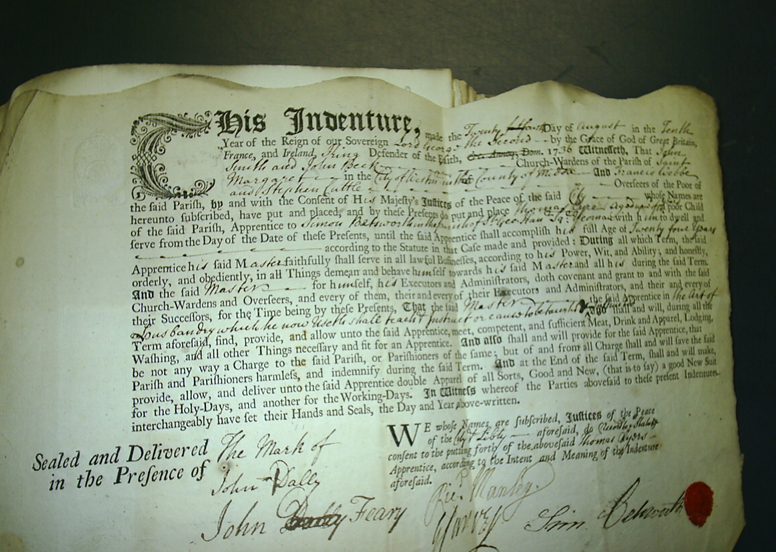 This Indenture, made the Twenty Day of August in the Tenth
Year of the Reign of our Sovereign Lord George the Second by the Grace of God of Great Britain,
France, and Ireland, King Defender of the Faith, Dom. 1736 Witnesseth, That John
Smith and John Beck Church-Wardens of the Parish of Saint
Margaret in the And Francis
and Stephen Cuttle Overseers of the Poor of
the said Parish, by and with the Consent of His Majesty's Justices of the Peace of the said whose Names are
hereunto subscribed, have put and placed, and by these Presents do put and place a poor Child
of the said Parish, Apprentice to Simon with him to dwell and
serve from the Day of the Date of these Presents, until the said Apprentice shall accomplish his full Age of Twenty four Years
according to the Statute in that Case made and provided: During all which Term, the said
Apprentice his said Master faithfully shall serve in all lawful Businesses, according to his Power, Wit, and Ability; and honestly,
orderly, and obediently, in all Things demean and behave himself towards his said Master and all his during the said Term.
And the said Master for himself, his Executors and Administrators, doth covenant and grant to and with the said
Church-Wardens and Overseers, and every of them, their and every of their Executors and Administrators, and their and every of
their Successors, for the Time being by these Presents, That the said Master the said Apprentice in the art of
Husbandry which he now useth shall teach & instruct or cause to be taught & shall and will, during all the
Term aforesaid, find, provide, and allow unto the said Apprentice, meet, competent, and sufficient Meat, Drink and Apparel, Lodging,
Washing, and all other Things necessary and fit for an Apprentice. And also shall and will provide for the said Apprentice, that
be not any way a Charge to the said Parish, or Parishioners of the same; but of and from all Charge shall and will save the said
Parish and Parishioners harmless, and indemnify during the said Term. And at the End of the said Term, shall and will make,
provide, allow, and deliver unto the said Apprentice double Apparel of all Sorts, Good and New, (that is to say) a good New Suit
for the Holy-Days, and another for the Working-Days. In Witness whereof the Parties abovesaid to these present Indentures
interchangeably have set their Hands and Seals, the Day and Year above-written.
WE whose Names are subscribed, Justices of the Peace
of the aforesaid, do
consent to the putting forth of the abovesaid Thomas Ayers
Apprentice, according to the Intent and Meaning of the Indenture
aforesaid.
Sealed and Delivered
in the Presence of
The Mark of
John Dally
John Feary